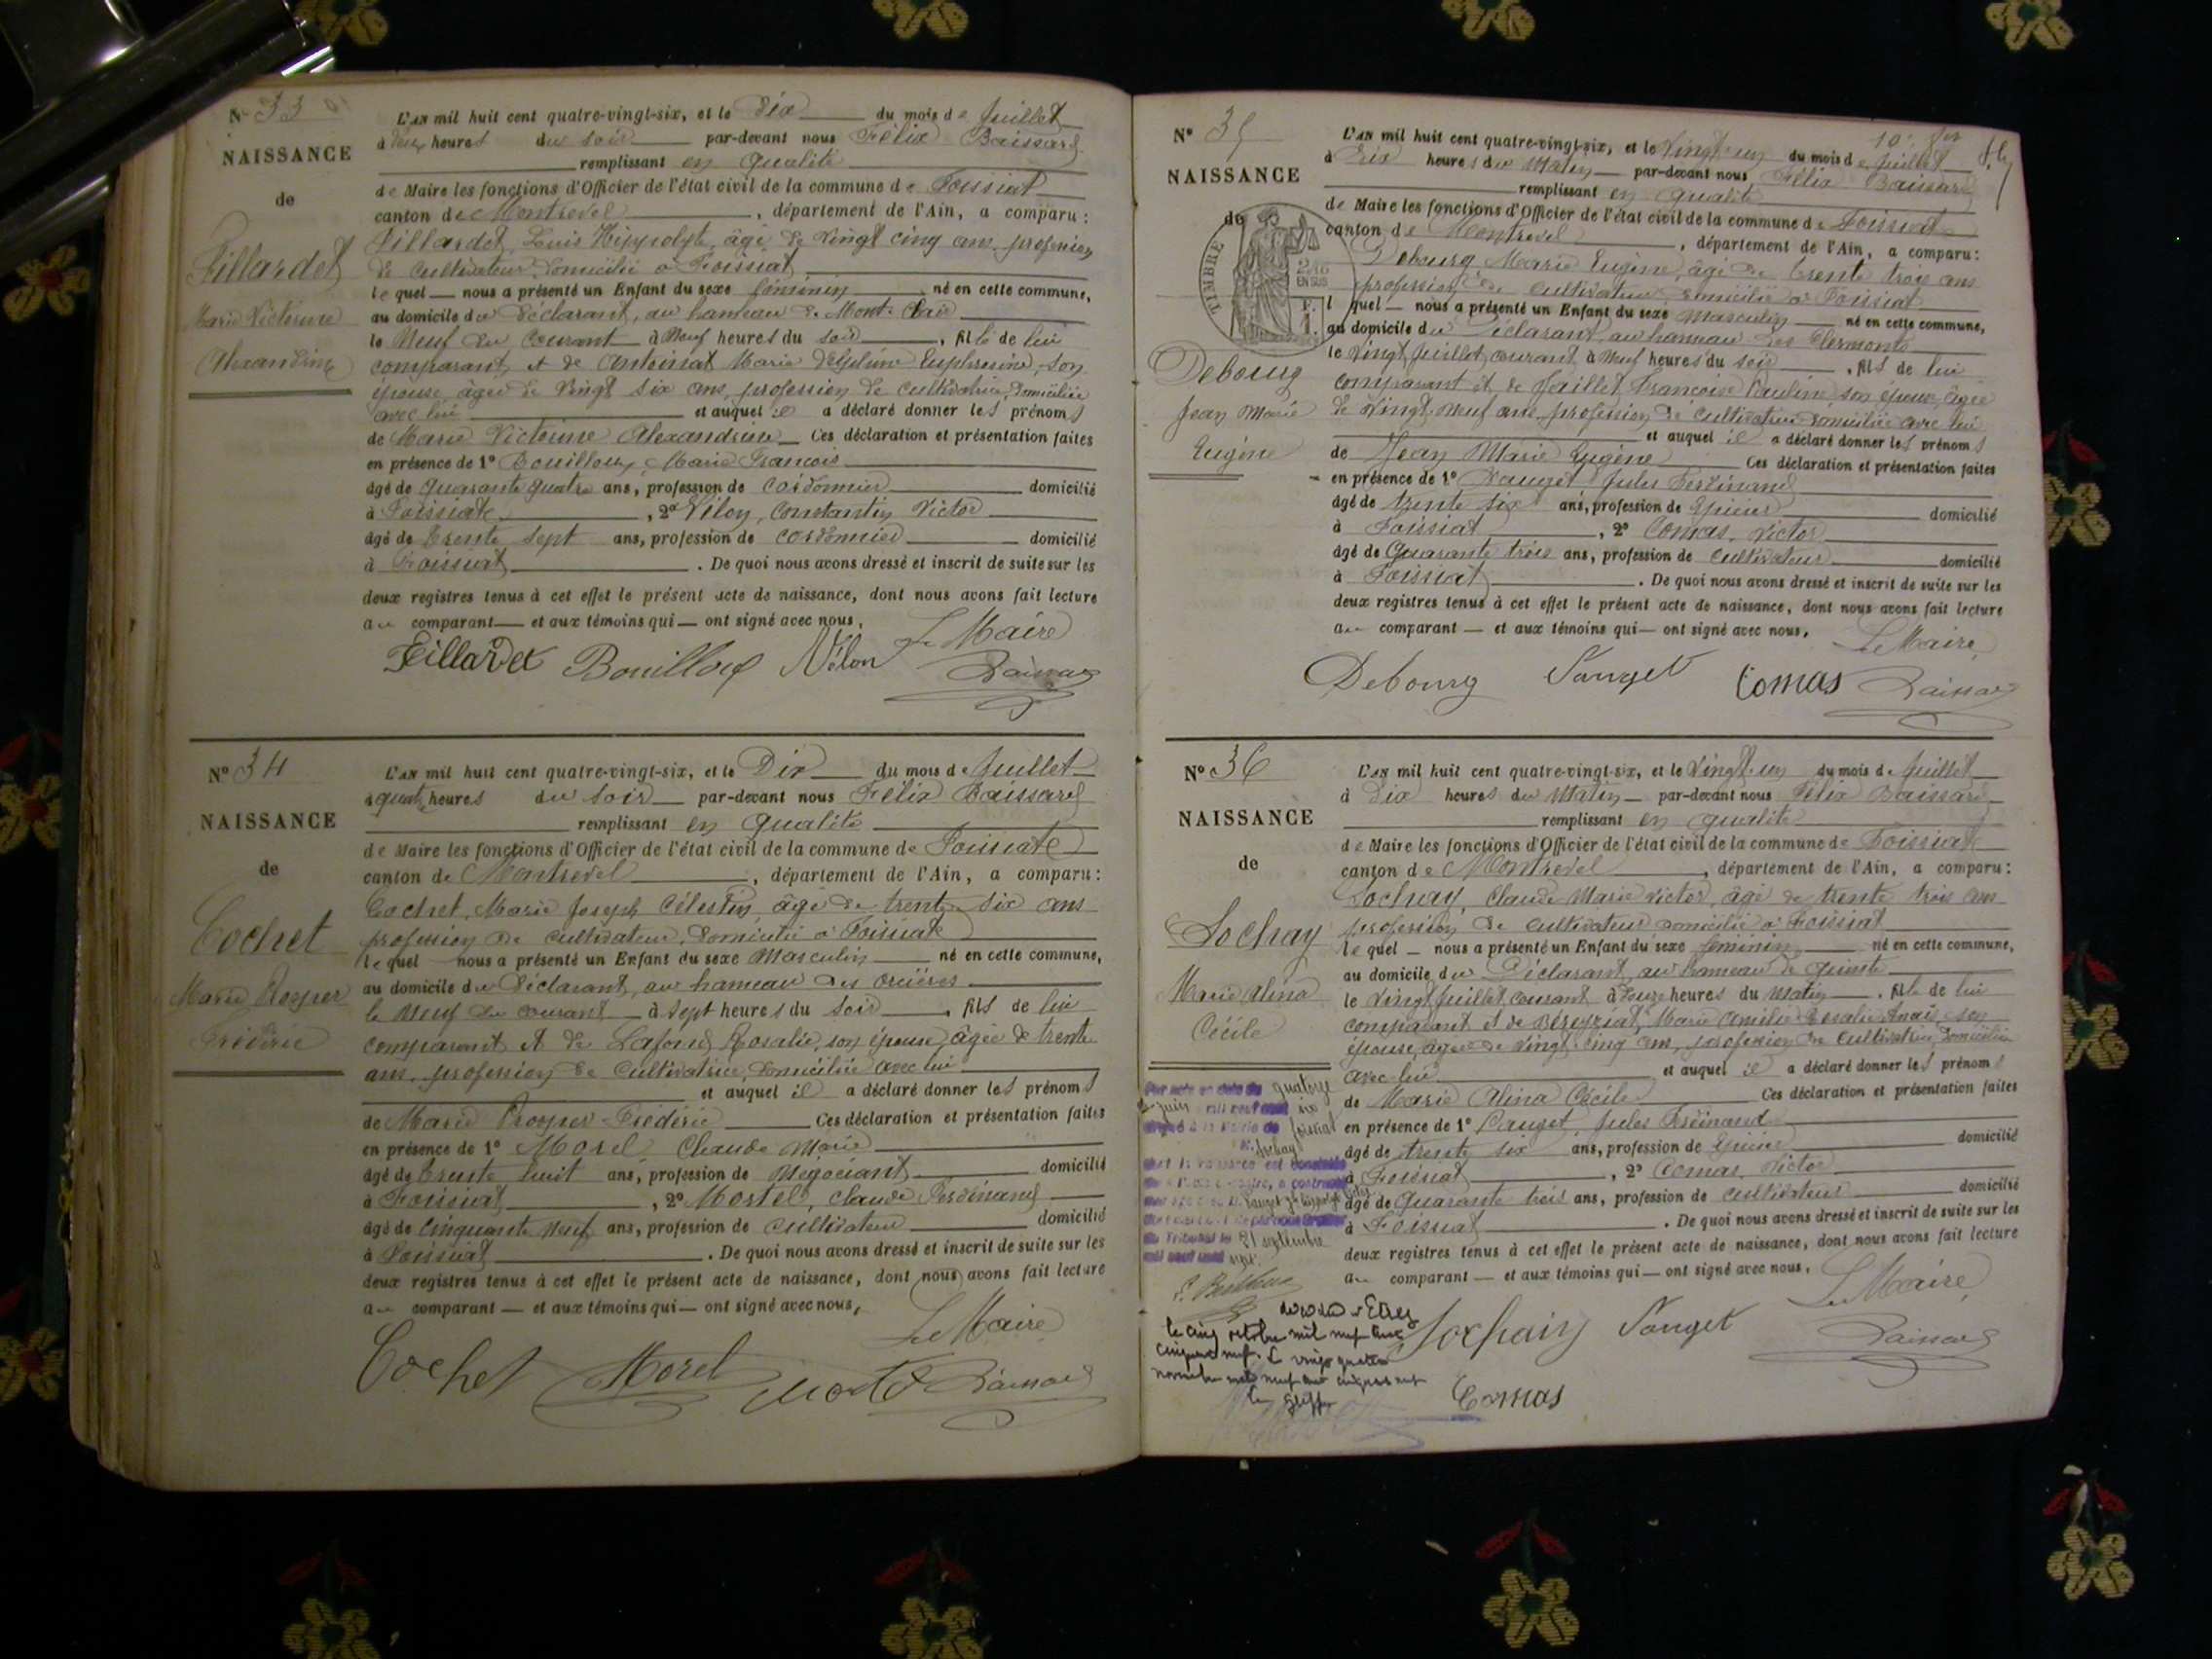 N° 33
NAISSANCE
de
Tillardet
Marie Victorine
Alexandrine
L'AN mil huit cent quatre-vingt-six, et le Dix du mois de Juillet
à deux heures du soir par-devant nous Félix Baissard
remplissant en qualité
de Maire les fonctions d'Officier de l'état civil de la commune de Foissiat
canton de Montrevel, département de l'Ain, a comparu :
Tillardet, Louis Hippolyte, âgé de vingt cinq ans, profession
de cultivateur, domicilié à Foissiat
lequel nous a présenté un Enfant du sexe féminin né en cette commune,
au domicile du Déclarant, au hameau de Mont-
le Neuf du courant à Neuf heures du soir, fille de lui
comparant et de Antoinat Marie Delphine Euphrosine, son
épouse, âgée de vingt six ans, profession de cultivatrice, domiciliée
avec lui et auquel il a déclaré donner les prénoms
de Marie Victorine Alexandrine Ces déclaration et présentation faites
en présence de 1° Bouilloux, Marie François
âgé de quarante quatre ans, profession de cordonnier domicilié
à Foissiat, 2° Vélon, Constantin Victor
âgé de trente sept ans, profession de cordonnier domicilié
à Foissiat. De quoi nous avons dressé et inscrit de suite sur les
deux registres tenus à cet effet le présent acte de naissance, dont nous avons fait lecture
au comparant et aux témoins qui ont signé avec nous,
Le Maire
Tillardet Bouilloux Vélon Baissard
N° 34
NAISSANCE
de
Cochet
Marie Prosper
Frédéric
L'AN mil huit cent quatre-vingt-six, et le Dix du mois de Juillet
à quatre heures du soir par-devant nous Félix Baissard
remplissant en qualité
de Maire les fonctions d'Officier de l'état civil de la commune de Foissiat
canton de Montrevel, département de l'Ain, a comparu :
Cochet, Marie Joseph Célestin, âgé de trente six ans
profession de cultivateur, domicilié à Foissiat
lequel nous a présenté un Enfant du sexe Masculin né en cette commune,
au domicile du Déclarant, au hameau des
le Neuf du courant à sept heures du soir, fils de lui
comparant et de Lafond, Rosalie, son épouse, âgée de trente
ans, profession de cultivatrice, domiciliée avec lui
et auquel il a déclaré donner les prénoms
de Marie Prosper Frédéric Ces déclaration et présentation faites
en présence de 1° Morel, Claude Marie
âgé de trente huit ans, profession de Négociant domicilié
à Foissiat, 2° Mortel, Claude Ferdinand
âgé de cinquante neuf ans, profession de cultivateur domicilié
à Foissiat. De quoi nous avons dressé et inscrit de suite sur les
deux registres tenus à cet effet le présent acte de naissance, dont nous avons fait lecture
au comparant et aux témoins qui ont signé avec nous,
Le Maire
Cochet Morel Mortel Baissard
N° 35
NAISSANCE
de
TIMBRE
Debourg
Jean Marie
Eugène
L'AN mil huit cent quatre-vingt-six, et le vingt un du mois de Juillet
à Dix heures du Matin par-devant nous Félix Baissard
remplissant en qualité
de Maire les fonctions d'Officier de l'état civil de la commune de Foissiat
canton de Montrevel, département de l'Ain, a comparu :
Debourg Marie Eugène, âgé de trente trois ans
profession de cultivateur, domicilié à Foissiat
lequel nous a présenté un Enfant du sexe Masculin né en cette commune,
au domicile du Déclarant, au hameau des Clermonts
le vingt Juillet courant, à Neuf heures du soir, fils de lui
comparant et de Jaillet Françoise Pauline, son épouse, âgée
de vingt neuf ans, profession de cultivatrice, domiciliée avec lui
et auquel il a déclaré donner les prénoms
de Jean Marie Eugène Ces déclaration et présentation faites
en présence de 1° Pauget Jules Ferdinand
âgé de trente six ans, profession de épicier domicilié
à Foissiat, 2° Comas, Victor
âgé de quarante trois ans, profession de cultivateur domicilié
à Foissiat. De quoi nous avons dressé et inscrit de suite sur les
deux registres tenus à cet effet le présent acte de naissance, dont nous avons fait lecture
au comparant et aux témoins qui ont signé avec nous,
Le Maire
Debourg Pauget Comas Baissard
N° 36
NAISSANCE
de
Sochay
Marie Alina
Cécile
L'AN mil huit cent quatre-vingt-six, et le vingt un du mois de Juillet
à Dix heures du Matin par-devant nous Félix Baissard
remplissant en qualité
de Maire les fonctions d'Officier de l'état civil de la commune de Foissiat
canton de Montrevel, département de l'Ain, a comparu :
Sochay, Claude Marie Victor, âgé de trente trois ans
profession de cultivateur domicilié à Foissiat
lequel nous a présenté un Enfant du sexe féminin né en cette commune,
au domicile du Déclarant, au hameau de
le vingt Juillet courant à Douze heures du Matin, fille de lui
comparant et de Béreyziat, Marie Amélie Rosalie Anaïs, son
épouse, âgée de vingt cinq ans, profession de cultivatrice, domiciliée
avec lui et auquel il a déclaré donner les prénoms
de Marie Alina Cécile Ces déclaration et présentation faites
en présence de 1° Pauget, Jules Ferdinand
âgé de trente six ans, profession de épicier domicilié
à Foissiat, 2° Comas, Victor
âgé de quarante trois ans, profession de cultivateur domicilié
à Foissiat. De quoi nous avons dressé et inscrit de suite sur les
deux registres tenus à cet effet le présent acte de naissance, dont nous avons fait lecture
au comparant et aux témoins qui ont signé avec nous,
Le Maire
Sochay Pauget Baissard
Comas
Par acte en date du quatorze
juin mil neuf cent six
Foissiat
Sochay
21 septembre
le cinq octobre mil neuf cent
cinquante neuf. Le vingt quatre
novembre mil neuf cent cinquante neuf
Le greffier